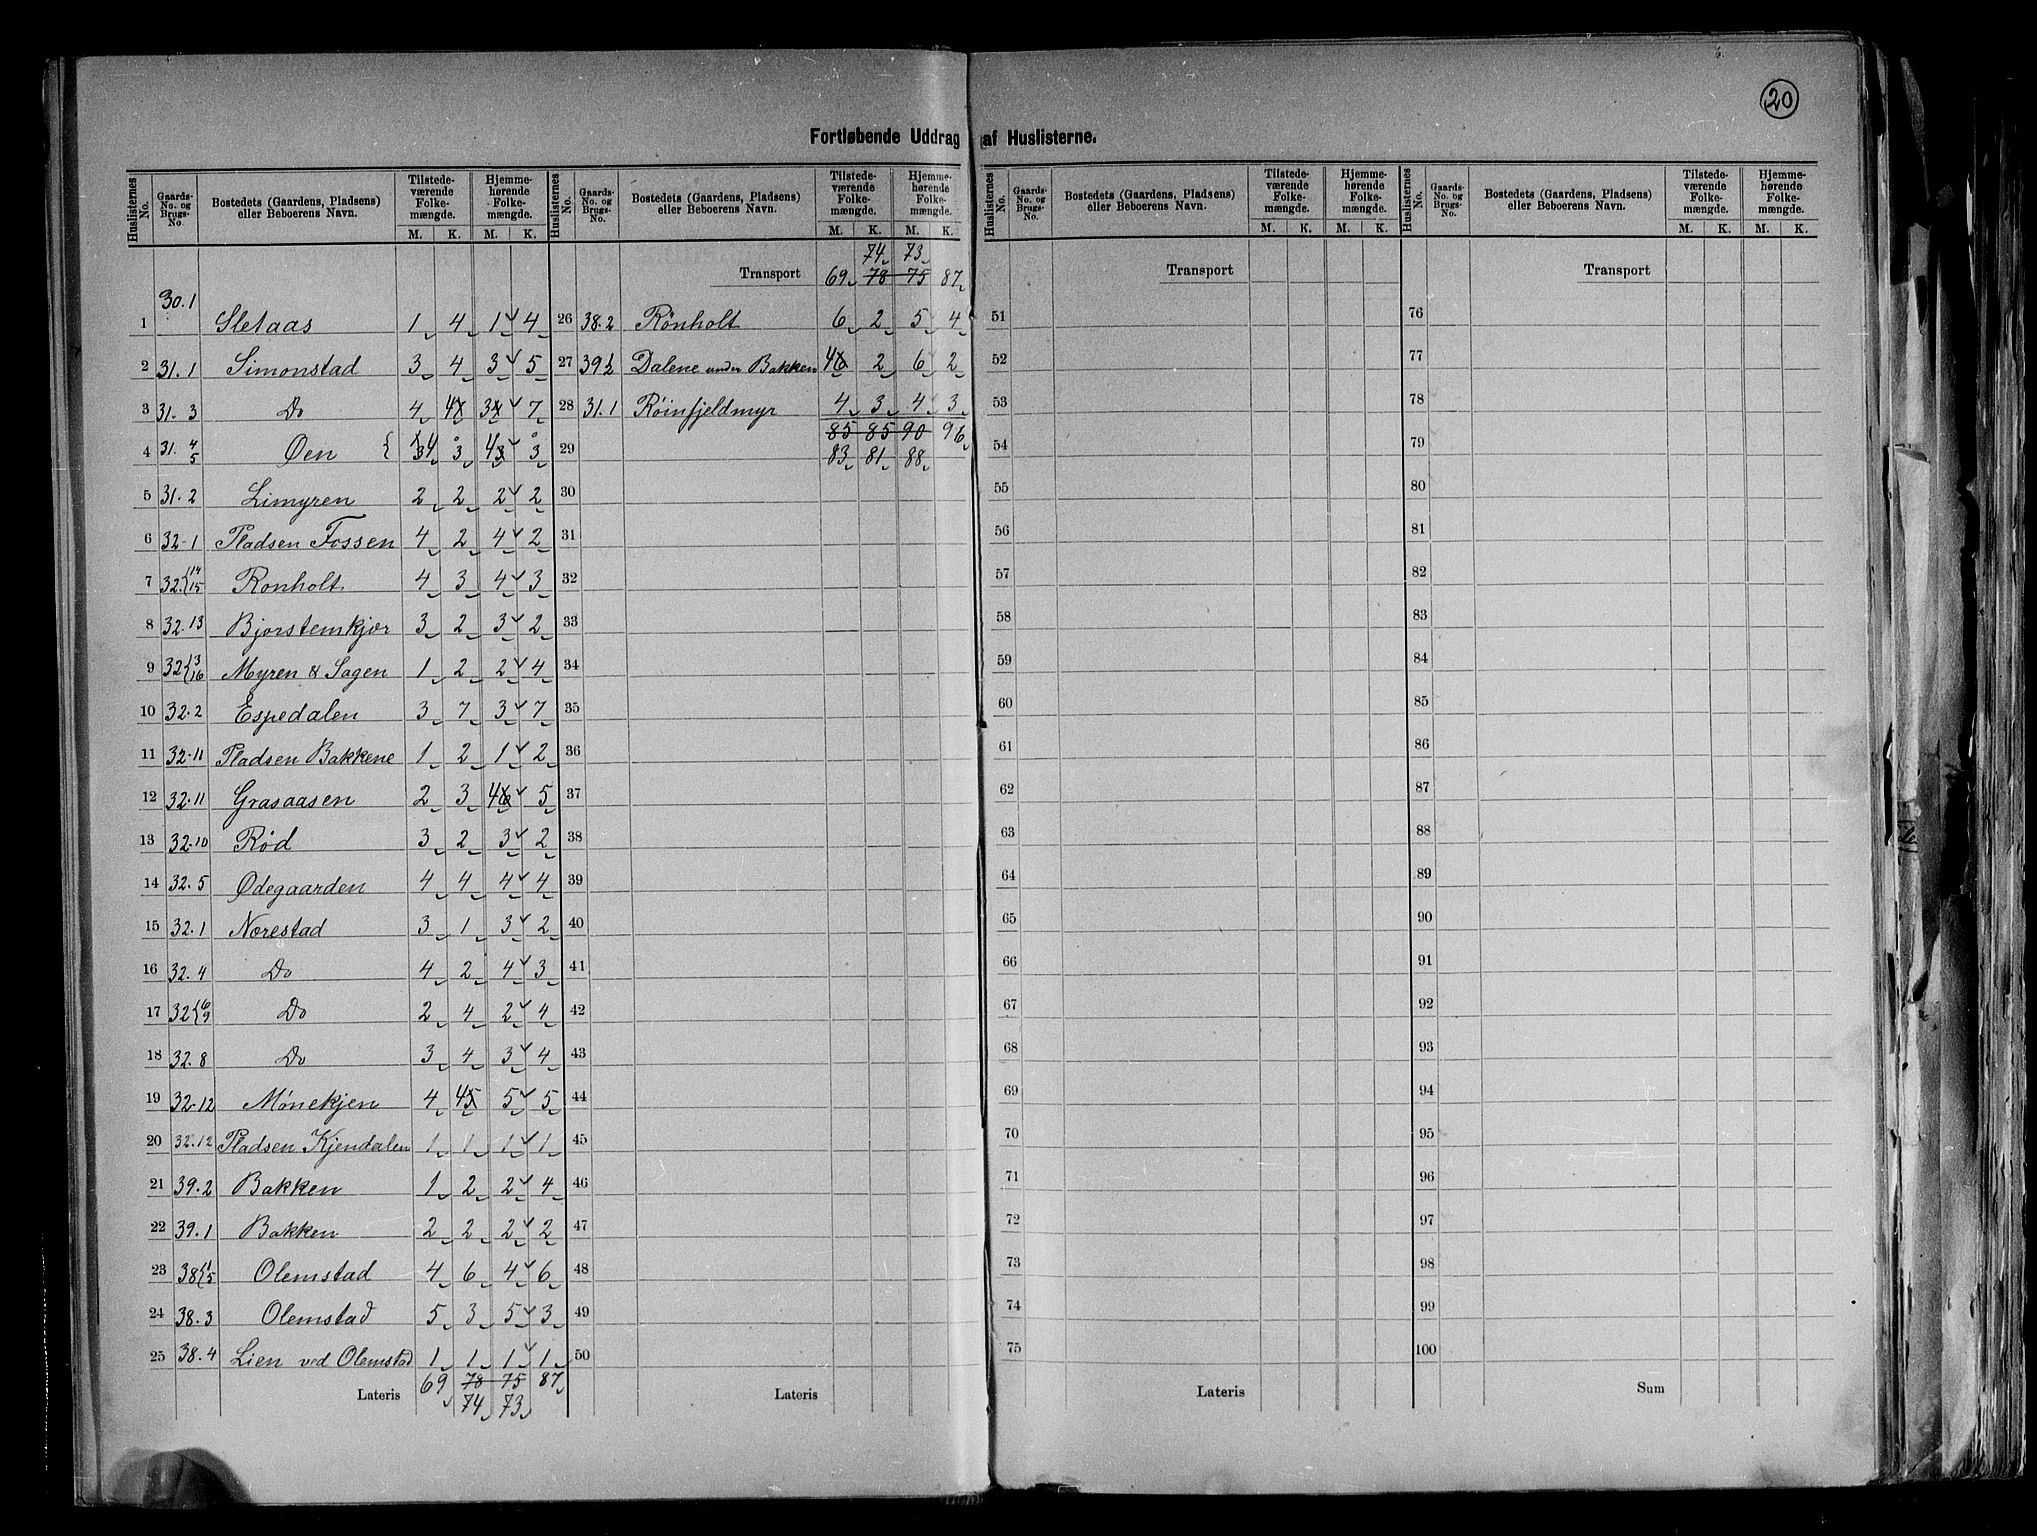 20
Fortløbende Uddrag af Huslisterne.
Huslisternes No. | Gaards-No. og Brugs-No. | Bostedets (Gaardens, Pladsens) eller Beboerens Navn. | Tilstedeværende Folkemængde. M. K. | Hjemmehørende Folkemængde. M. K.
1 30.1 Sletaas 1 4 1 4
2 31.1 Simonstad 3 4 3 5
3 31.3 Do 4 4 3 7
4 31. 4/5 Øen { 4 3 4 3
5 31.2 Limyren 2 2 2 2
6 32-1 Pladsen Fossen 4 2 4 2
7 32.{14/15 Ronholt 4 3 4 3
8 32.13 Bjorstemkjær 3 2 3 2
9 32{3/16 Myren & Sagen 1 2 2 4
10 32.2 Espedalen 3 7 3 7
11 32-11 Pladsen Bakkene 1 2 1 2
12 32.11 Grasaasen 2 3 4 5
13 32.10 Rød 3 2 3 2
14 32.5 Ødegaarden 4 4 4 4
15 32.1 Nærestad 3 1 3 2
16 32.4 Do 4 2 4 3
17 32{6/9 Do 2 4 2 4
18 32.8 Do 3 4 3 4
19 32-12 Mønekjen 4 4 5 5
20 32.12 Pladsen Kjendalen 1 1 1 1
21 39.2 Bakken 1 2 2 4
22 39.1 Bakken 2 2 2 2
23 38{1/5 Olemstad 4 6 4 6
24 38.3 Olemstad 5 3 5 3
25 38.4 Lien ved Olemstad 1 1 1 1
Lateris 69 78 75 87
74 73
Huslisternes No. | Gaards-No. og Brugs-No. | Bostedets (Gaardens, Pladsens) eller Beboerens Navn. | Tilstedeværende Folkemængde. M. K. | Hjemmehørende Folkemængde. M. K.
74 73
Transport 69 78 75 87
26 38.2 Rønholt 6 2 5 4
27 39 Dalene under Bakken 4 2 6 2
28 31.1 Røinfjeldmyr 4 3 4 3
85 85 90 96
29 83 81 88
30
31
32
33
34
35
36
37
38
39
40
41
42
43
44
45
46
47
48
49
50
Lateris
Huslisternes No. | Gaards-No. og Brugs-No. | Bostedets (Gaardens, Pladsens) eller Beboerens Navn. | Tilstedeværende Folkemængde. M. K. | Hjemmehørende Folkemængde. M. K.
Transport
51
52
53
54
55
56
57
58
59
60
61
62
63
64
65
66
67
68
69
70
71
72
73
74
75
Lateris
Huslisternes No. | Gaards-No. og Brugs-No. | Bostedets (Gaardens, Pladsens) eller Beboerens Navn. | Tilstedeværende Folkemængde. M. K. | Hjemmehørende Folkemængde. M. K.
Transport
76
77
78
79
80
81
82
83
84
85
86
87
88
89
90
91
92
93
94
95
96
97
98
99
100
Sum